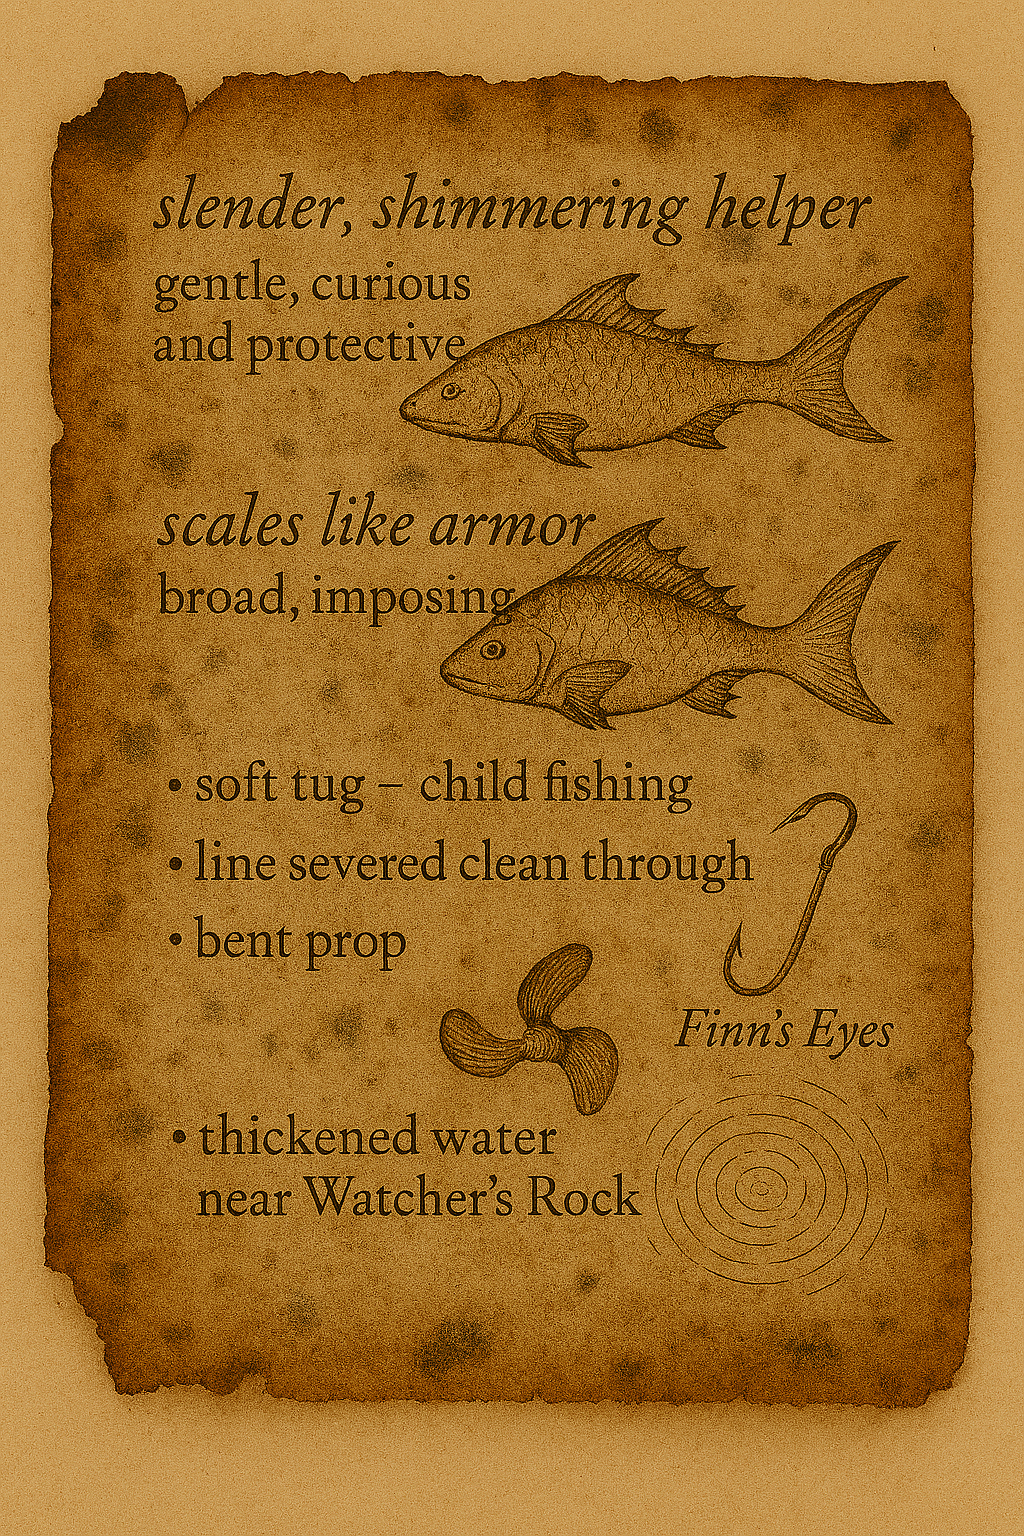 slender, shimmering helper
gentle, curious
and protective
scales like armor
broad, imposing
• soft tug – child fishing
• line severed clean through
• bent prop
Finn's Eyes
• thickened water
near Watcher's Rock